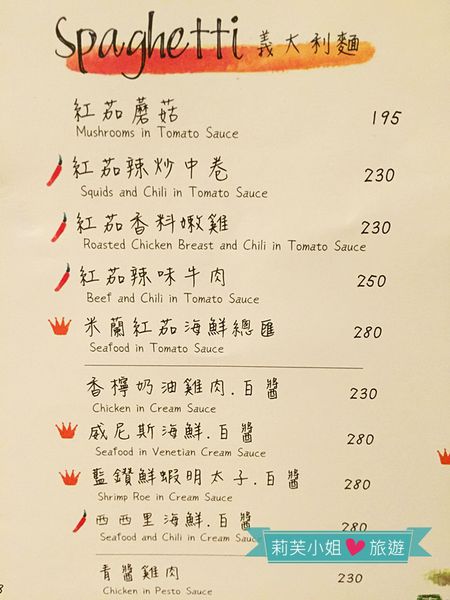 Spaghetti 義大利麵
紅茄蘑菇 195
Mushrooms in Tomato Sauce
紅茄辣炒中卷 230
Squids and Chili in Tomato Sauce
紅茄香料嫩雞 230
Roasted Chicken Breast and Chili in Tomato Sauce
紅茄辣味牛肉 250
Beef and Chili in Tomato Sauce
米蘭紅茄海鮮總匯 280
Seafood in Tomato Sauce
香檸奶油雞肉.白醬 230
Chicken in Cream Sauce
威尼斯海鮮.白醬 280
Seafood in Venetian Cream Sauce
藍鑽鮮蝦明太子.白醬 280
Shrimp Roe in Cream Sauce
西西里海鮮.白醬 280
Seafood and Chili in Cream Sauce
莉芙小姐❤旅遊
青醬雞肉 230
Chicken in Pesto Sauce
8